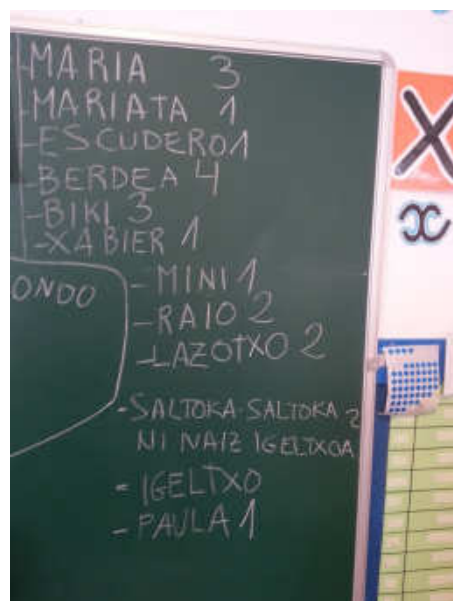 MARIA 3
-MARIATA 1
-ESCUDERO 1
-BERDEA 4
-BIKI 3
-XABIER 1
ONDO
-MINI 1
-RAIO 2
-LAZOTXO 2
-SALTOKA-SALTOKA 2
NI NAIZ IGELTXOA
-IGELTXO
-PAULA 1
X
x